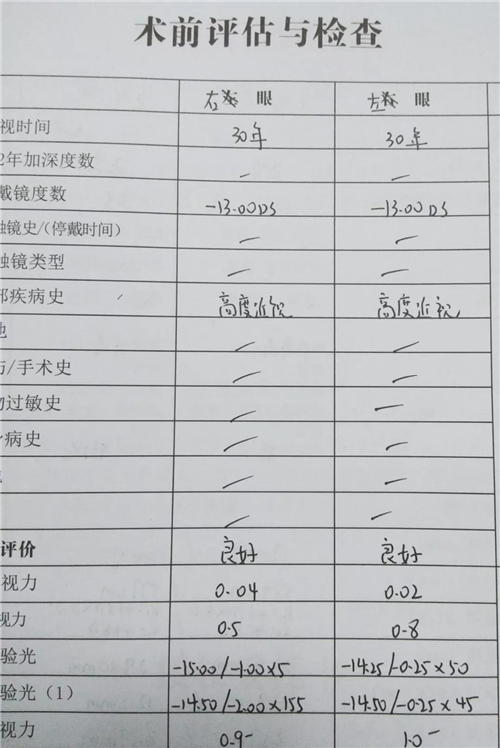 术前评估与检查
右眼 眼 左眼 眼
视时间 30年 30年
2年加深度数 — —
戴镜度数 -13.00DS -13.00DS
触镜史/(停戴时间) — —
触镜类型 — —
部疾病史 高度近视 高度近视
他 — —
伤/手术史 — —
物过敏史 — —
病史 — —
— —
— —
评价 良好 良好
视力 0.04 0.02
视力 0.5 0.8
验光 -15.00/-1.00×5 -14.25/-0.25×50
验光(1) -14.50/-2.00×155 -14.50/-0.25×45
视力 0.9- 1.0-